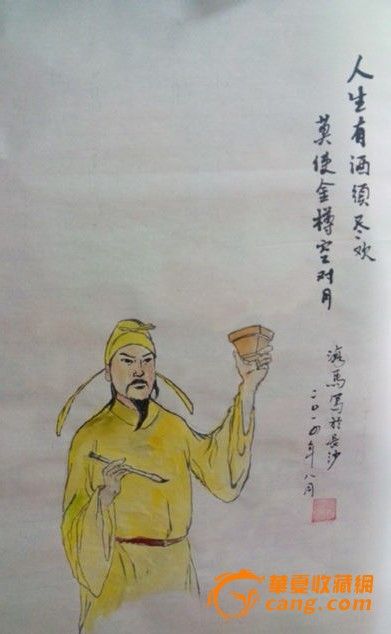 人生有酒须尽欢
莫使金樽空对月
馬写於長沙
二〇一四年八月
華夏收藏網
cang.com